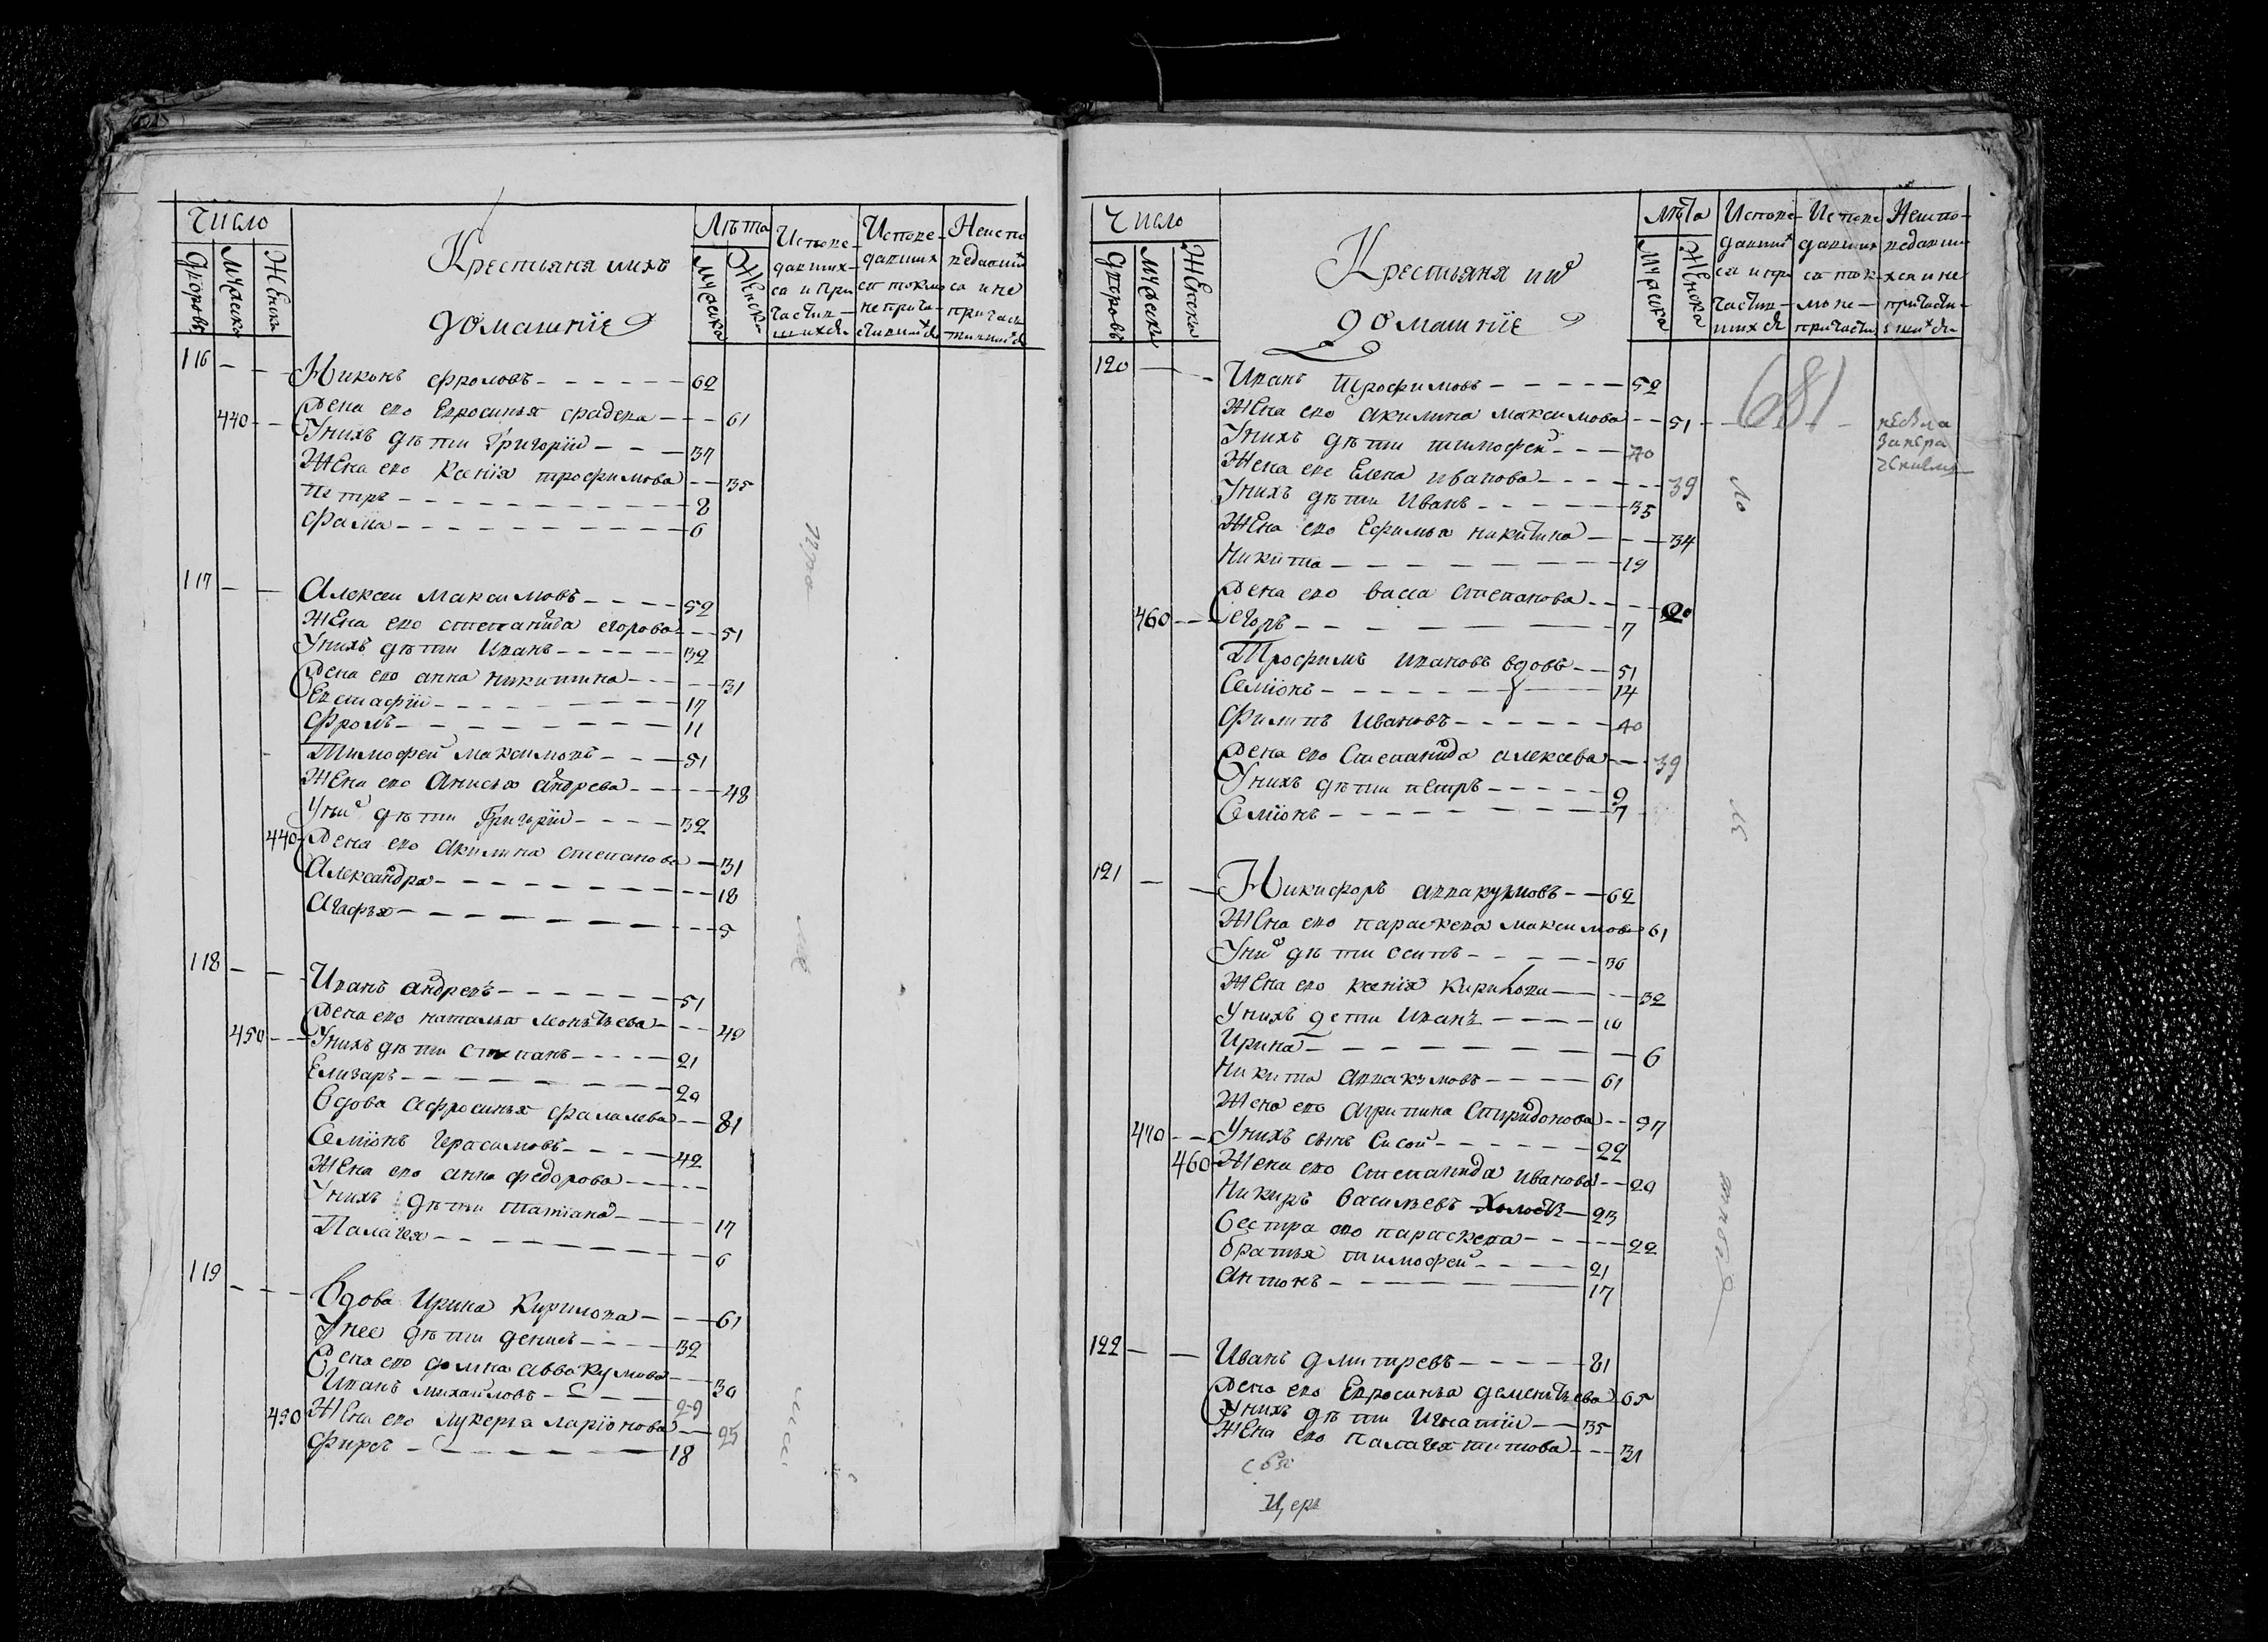 Число
Дворовъ
Мужеска
Женска
Крестьяня ихъ
домашніе
Лѣта
Мужеска
Женска
Испове-
давших-
ся и При
частив-
шихся
Испове-
давших
ся токмо
неприча-
стившихся
Неиспо
ведавших
ся и не
причас
тившихся
116 — — Никонъ фроловъ — 62
Жена ево Евросинья фадева — 61
440 — Унихъ дѣти Григорїи — 37
Жена ево Ксенїя трофимова — 35
Петръ — 8
Фама — 6
117 — — Алексеи Максимовъ — 52
Жена ево степанида егорова — 51
Унихъ дѣти Иванъ — 32
Жена ево анна никитина — 31
Евстафїи — 17
Фролъ — 11
Тимофеи Максимовъ — 51
Жена ево Анисья андрева — 48
Уних дѣти Григорїи — 32
440 Жена ево Акилина степанова — 31
Александра — 18
Агафья — 5
118 — — Иванъ андревъ — 51
Жена ево наталья Леонтьева — 49
450 — Унихъ дѣти степанъ — 21
Елизаръ — 20
Вдова Афросинья фалалева — 81
Семїонъ Герасимовъ — 42
Жена ево анна федорова —
Унихъ дѣти татїана — 17
Палагея — 6
119 — — Вдова Ирина Кирилова — 61
Унее дѣти денисъ — 32
Жена ево домна аввакумова — 30
Иванъ михаиловъ — 29
450 Жена ево лукерья ларїонова — 25
Фирсъ — 18
Число
Дворовъ
Мужеска
Женска
Крестьяня их
домашніе
Лѣта
Мужеска
Женска
Испове-
давших
ся и при
частив-
шихся
Испове
давших
ся ток-
мо не
причасти
Неиспо-
ведавши
хся и не
причасти-
681
120 — Иванъ Трофимовъ — 52
Жена ево акилина максимова — 51
Унихъ дѣти тимофеи — 40
Жена ево Елена иванова — 39
Унихъ дѣти Иванъ — 35
Жена ево Ефимья никитина — 34
Никита — 19
Жена ево васса Степанова — 20
460 — егоръ — 7
Трофимъ ивановъ вдовъ — 51
Семїонъ — 14
Филипъ Ивановъ — 40
Жена ево Степанида алексева — 39
Унихъ дѣти петръ — 9
Семїонъ — 7
121 — — Никифоръ аввакумовъ — 62
Жена ево параскева максимова 61
Уних дѣти осипъ — 36
Жена ево ксенїя Кирилова — 32
Унихъ дети Иванъ — 10
Ирина — 6
Никита аввакумовъ — 61
Жена ево Агрипина Спиридонова — 57
470 — Унихъ сынъ Сисои — 22
460 Жена ево Степанида иванова — 20
Никиръ Васильевъ Холостъ — 23
Сестра ево параскева — 22
братья тимофеи — 21
Антонъ — 17
122 — — Иванъ дмитревъ — 81
Жена ево Евросинья деменьтьева 65
Унихъ дѣти Игнатїи — 35
Жена ево палагея титова — 31
Церк